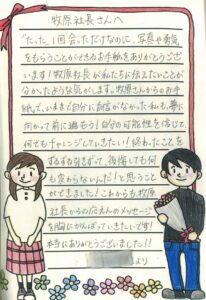 牧原社長さんへ
"たった"1回会っただけなのに、写真や勇気
をもらうことができるお手紙をありがとうござ
います!牧原社長が私たちに伝えたいことが
分かったような気がします。牧原さんからのお手
紙で、いままで自分に自信がなかった私も、夢に
向かって前に進もう!自分の可能性を信じて
何でもチャレンジしていきたい!終わったことを
ずるずる引きずって、後悔しても何
も変わらないんだ!と思うこと
ができました!これからも牧原
社長からの応えんのメッセージ
を胸にがんばっていきたいです!
本当にありがとうございました!!
より